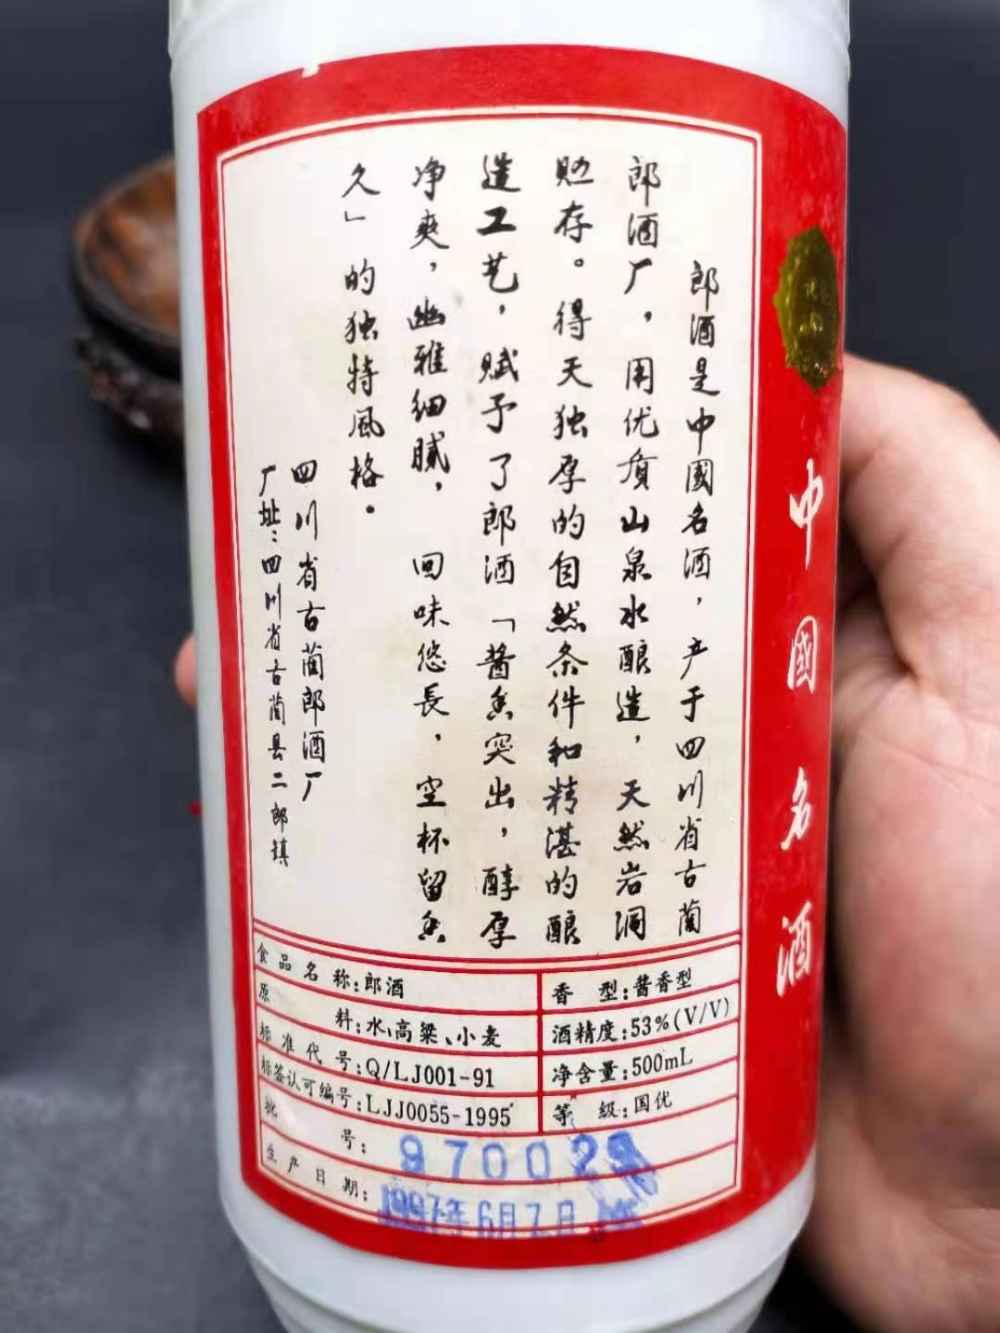 郎酒是中國名酒，产于四川省古蔺
郎酒厂，用优质山泉水酿造，天然岩洞
贮存。得天独厚的自然条件和精湛的酿
造工艺，赋予了郎酒「酱香突出，醇厚
净爽，幽雅细腻，回味悠長，空杯留香
久」的独特風格。
四川省古蔺郎酒厂
厂址：四川省古蔺县二郎镇
中國名酒
食品名称:郎酒
香型:酱香型
原料:水、高粱、小麦
酒精度:53%(V/V)
标准代号:Q/LJ001-91
净含量:500mL
标签认可编号:LJJ0055-1995
等级:国优
批号:
970029
生产日期:
1997年6月7日